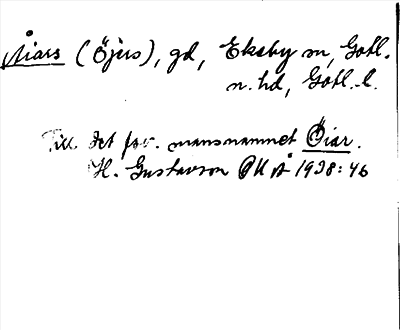 Åiars (Öjers), gd, Eksby sn, Gotl.
n. hd, Gotl. l.
Till det fsv. mansnamnet Öiar.
H. Gustavson OUÅ 1938:46